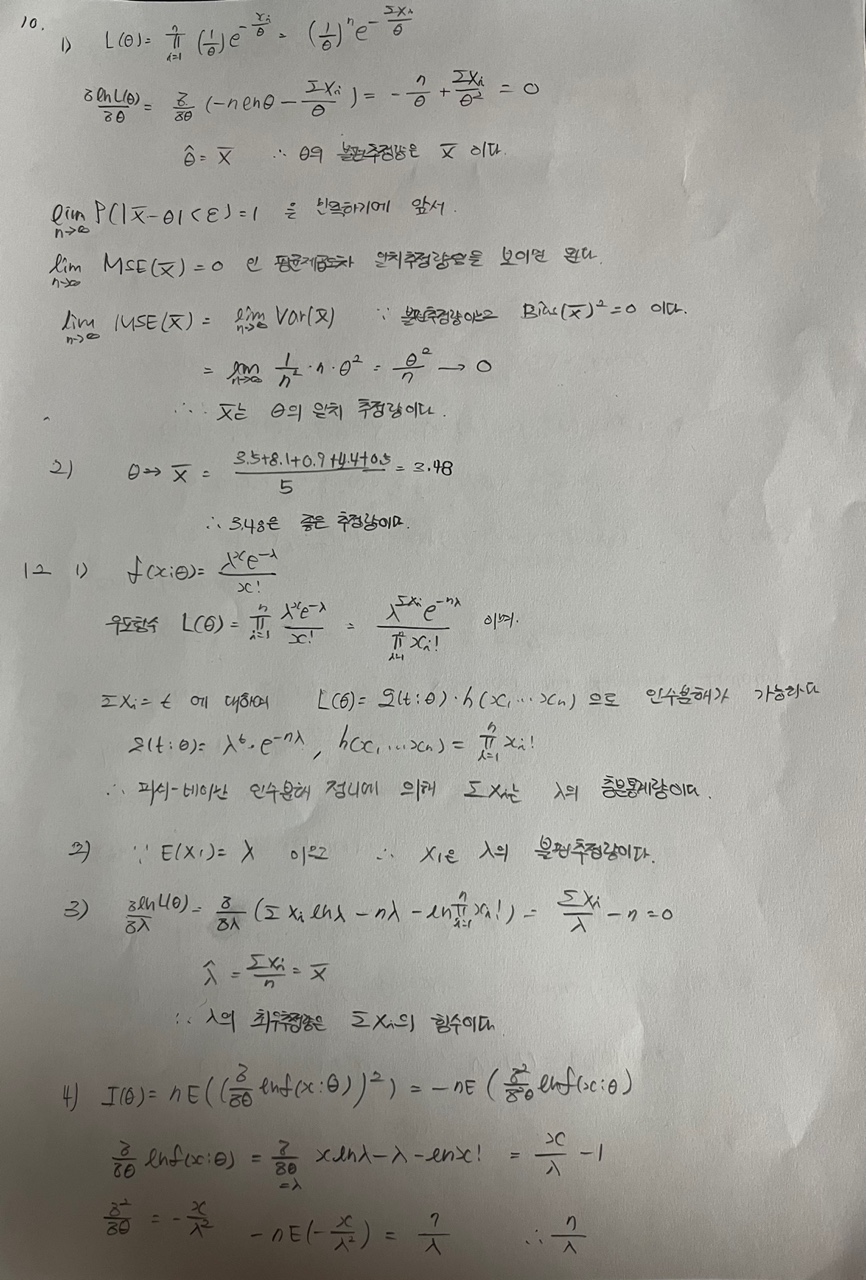 10.
1) L(θ) = ∏_{i=1}^{n} (1/θ) e^{-xᵢ/θ} = (1/θ)^n e^{-Σxᵢ/θ}
∂lnL(θ)/∂θ = ∂/∂θ (-n lnθ - Σxᵢ/θ) = -n/θ + Σxᵢ/θ² = 0
θ̂ = x̄ ∴ θ의 불편추정량은 x̄ 이다.
lim_{n→∞} P(|x̄-θ|<ε)=1 을 만족하기에 앞서.
lim_{n→∞} MSE(x̄) = 0 인 평균제곱오차 일치추정량임을 보이면 된다.
lim_{n→∞} MSE(x̄) = lim_{n→∞} Var(x̄) ∵ 불편추정량이므로 Bias(x̄)² = 0 이다.
= lim_{n→∞} 1/n² · n · θ² = θ²/n → 0
∴ x̄는 θ의 일치 추정량이다.
2) θ → x̄ = (3.5+8.1+0.9+4.4+0.5)/5 = 3.48
∴ 3.48은 좋은 추정량이다.
12 1) f(x:θ) = λ^x e^{-λ}/x!
우도함수 L(θ) = ∏_{i=1}^{n} λ^x e^{-λ}/x! = λ^{Σxᵢ} e^{-nλ}/∏_{i=1}^{n} xᵢ! 이며.
Σxᵢ = t 에 대하여 L(θ) = g(t:θ)·h(x₁…xₙ) 으로 인수분해가 가능하다
g(t:θ) = λ^t · e^{-nλ}, h(x₁…xₙ) = ∏_{i=1}^{n} xᵢ!
∴ 피셔-네이만 인수분해 정리에 의해 Σxᵢ는 λ의 충분통계량이다.
2) ∵ E(X₁) = λ 이므로 ∴ X₁은 λ의 불편추정량이다.
3) ∂lnL(θ)/∂λ = ∂/∂λ (Σxᵢ lnλ - nλ - ln∏_{i=1}^{n} xᵢ!) = Σxᵢ/λ - n = 0
λ̂ = Σxᵢ/n = x̄
∴ λ의 최우추정량은 Σxᵢ의 함수이다.
4) I(θ) = nE((∂/∂θ lnf(x:θ))²) = -nE(∂²/∂²θ lnf(x:θ)
∂/∂θ lnf(x:θ) = ∂/∂θ xlnλ - λ - lnx! = x/λ - 1
=λ
∂²/∂θ = -x/λ² -nE(-x/λ²) = n/λ ∴ n/λ